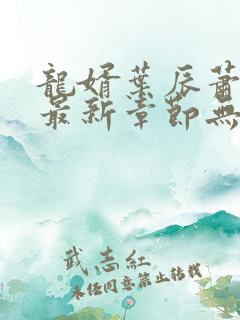 龍婿葉辰蕭
最新章節無
武志紅
未經同意禁止轉載